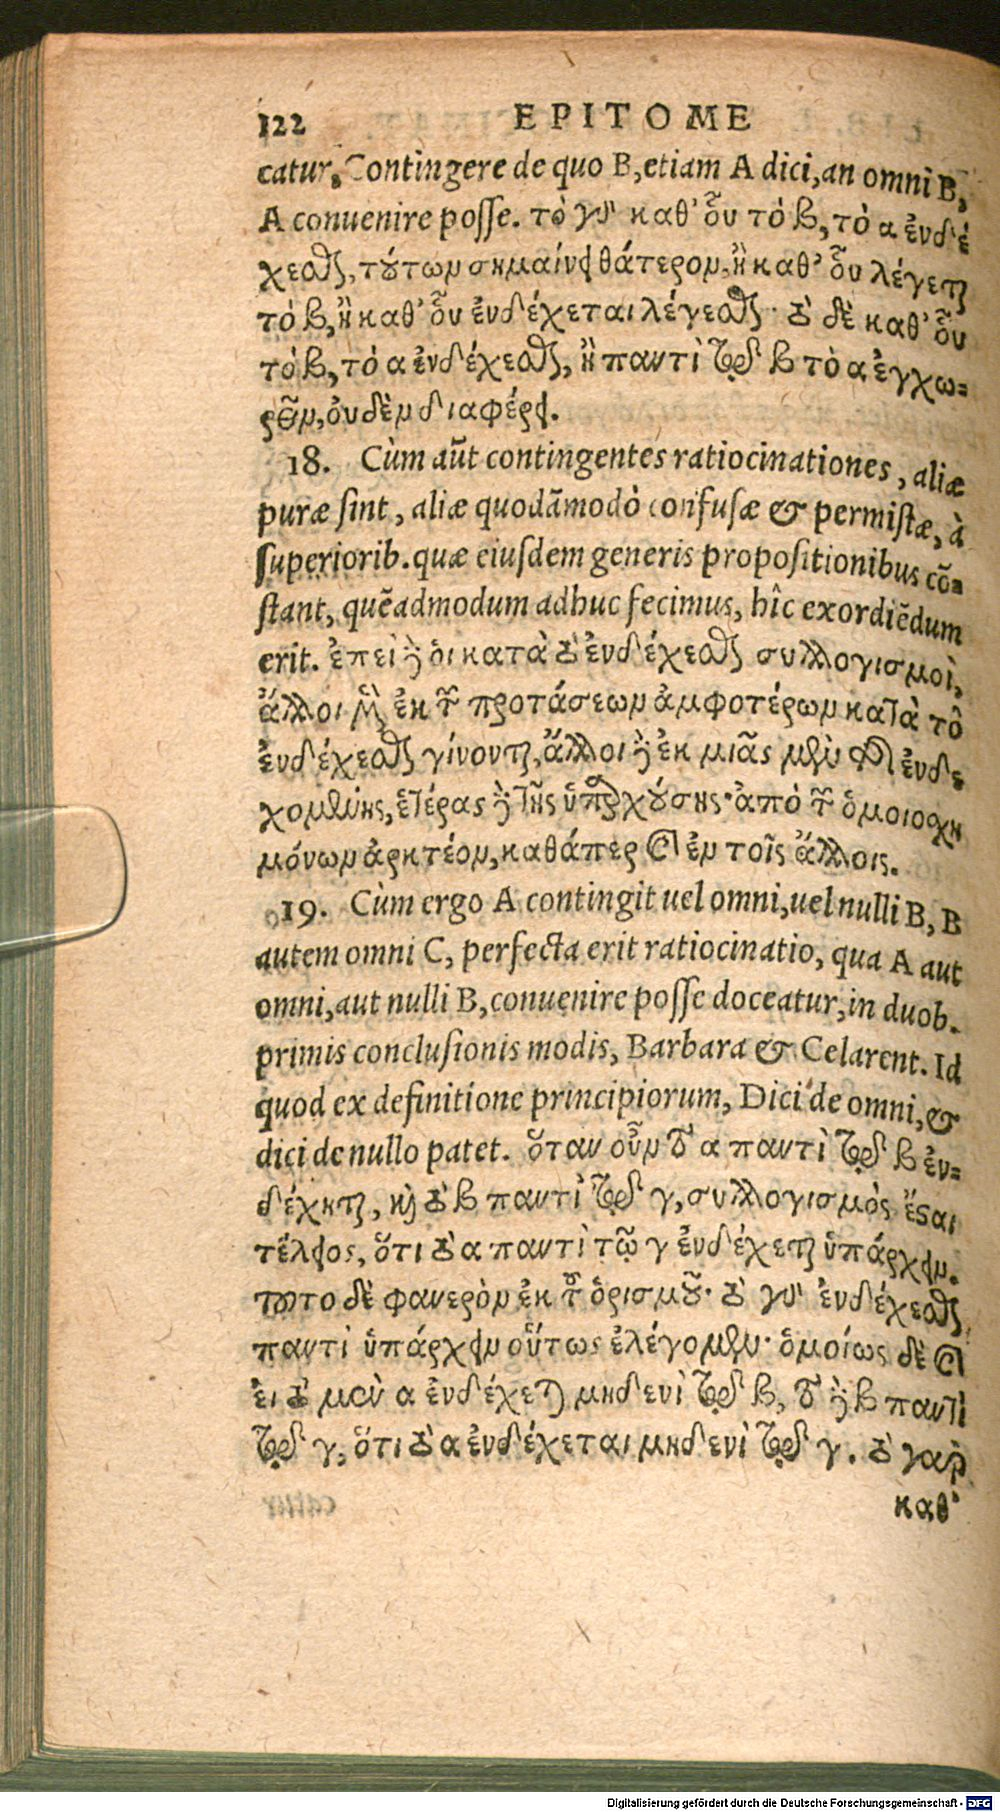 122 EPITOME
catur, Contingere de quo B, etiam A dici, an omni B,
A conuenire posse. τὸ γὰρ καθ' οὗ τὸ β, τὸ α ἐνδέ
χεσθαι, τούτων σημαίνει θάτερον, ἢ καθ' οὗ λέγεται
τὸ β, ἢ καθ' οὗ ἐνδέχεται λέγεσθαι· τὸ δὲ καθ' οὗ
τὸ β, τὸ α ἐνδέχεσθαι, ἢ παντὶ τῷ β τὸ α ἐγχω-
ρεῖν, οὐδὲν διαφέρει.
18. Cùm aũt contingentes ratiocinationes, aliæ
puræ sint, aliæ quodãmodò confusæ & permistæ, à
superiorib. quæ eiusdem generis propositionibus cõ-
stant, quẽadmodum adhuc fecimus, hîc exordiẽdum
erit. ἐπεὶ δὲ οἱ κατὰ τὸ ἐνδέχεσθαι συλλογισμοὶ,
ἄλλοι μὲν ἐκ τῶν προτάσεων ἀμφοτέρων κατὰ τὸ
ἐνδέχεσθαι γίνονται, ἄλλοι δὲ ἐκ μιᾶς μὲν τῆς ἐνδε
χομένης, ἑτέρας δὲ τῆς ὑπαρχούσης· ἀπὸ τῶν ὁμοιοσχη
μόνων ἀρκτέον, καθάπερ καὶ ἐν τοῖς ἄλλοις.
19. Cùm ergo A contingit uel omni, uel nulli B, B
autem omni C, perfecta erit ratiocinatio, qua A aut
omni, aut nulli B, conuenire posse doceatur, in duob.
primis conclusionis modis, Barbara & Celarent. Id
quod ex definitione principiorum, Dici de omni, &
dici de nullo patet. ὅταν οὖν τὸ α παντὶ τῷ β ἐν-
δέχηται, καὶ τὸ β παντὶ τῷ γ, συλλογισμὸς ἔσται
τέλειος, ὅτι τὸ α παντὶ τῷ γ ἐνδέχεται ὑπάρχειν.
τοῦτο δὲ φανερὸν ἐκ τοῦ ὁρισμοῦ· τὸ γὰρ ἐνδέχεσθαι
παντὶ ὑπάρχειν οὕτως ἐλέγομεν· ὁμοίως δὲ καὶ
εἰ τὸ μὲν α ἐνδέχεται μηδενὶ τῷ β, τὸ δὲ β παντὶ
τῷ γ, ὅτι τὸ α ἐνδέχεται μηδενὶ τῷ γ. τὸ γὰρ
καθ'
Digitalisierung gefördert durch die Deutsche Forschungsgemeinschaft - DFG